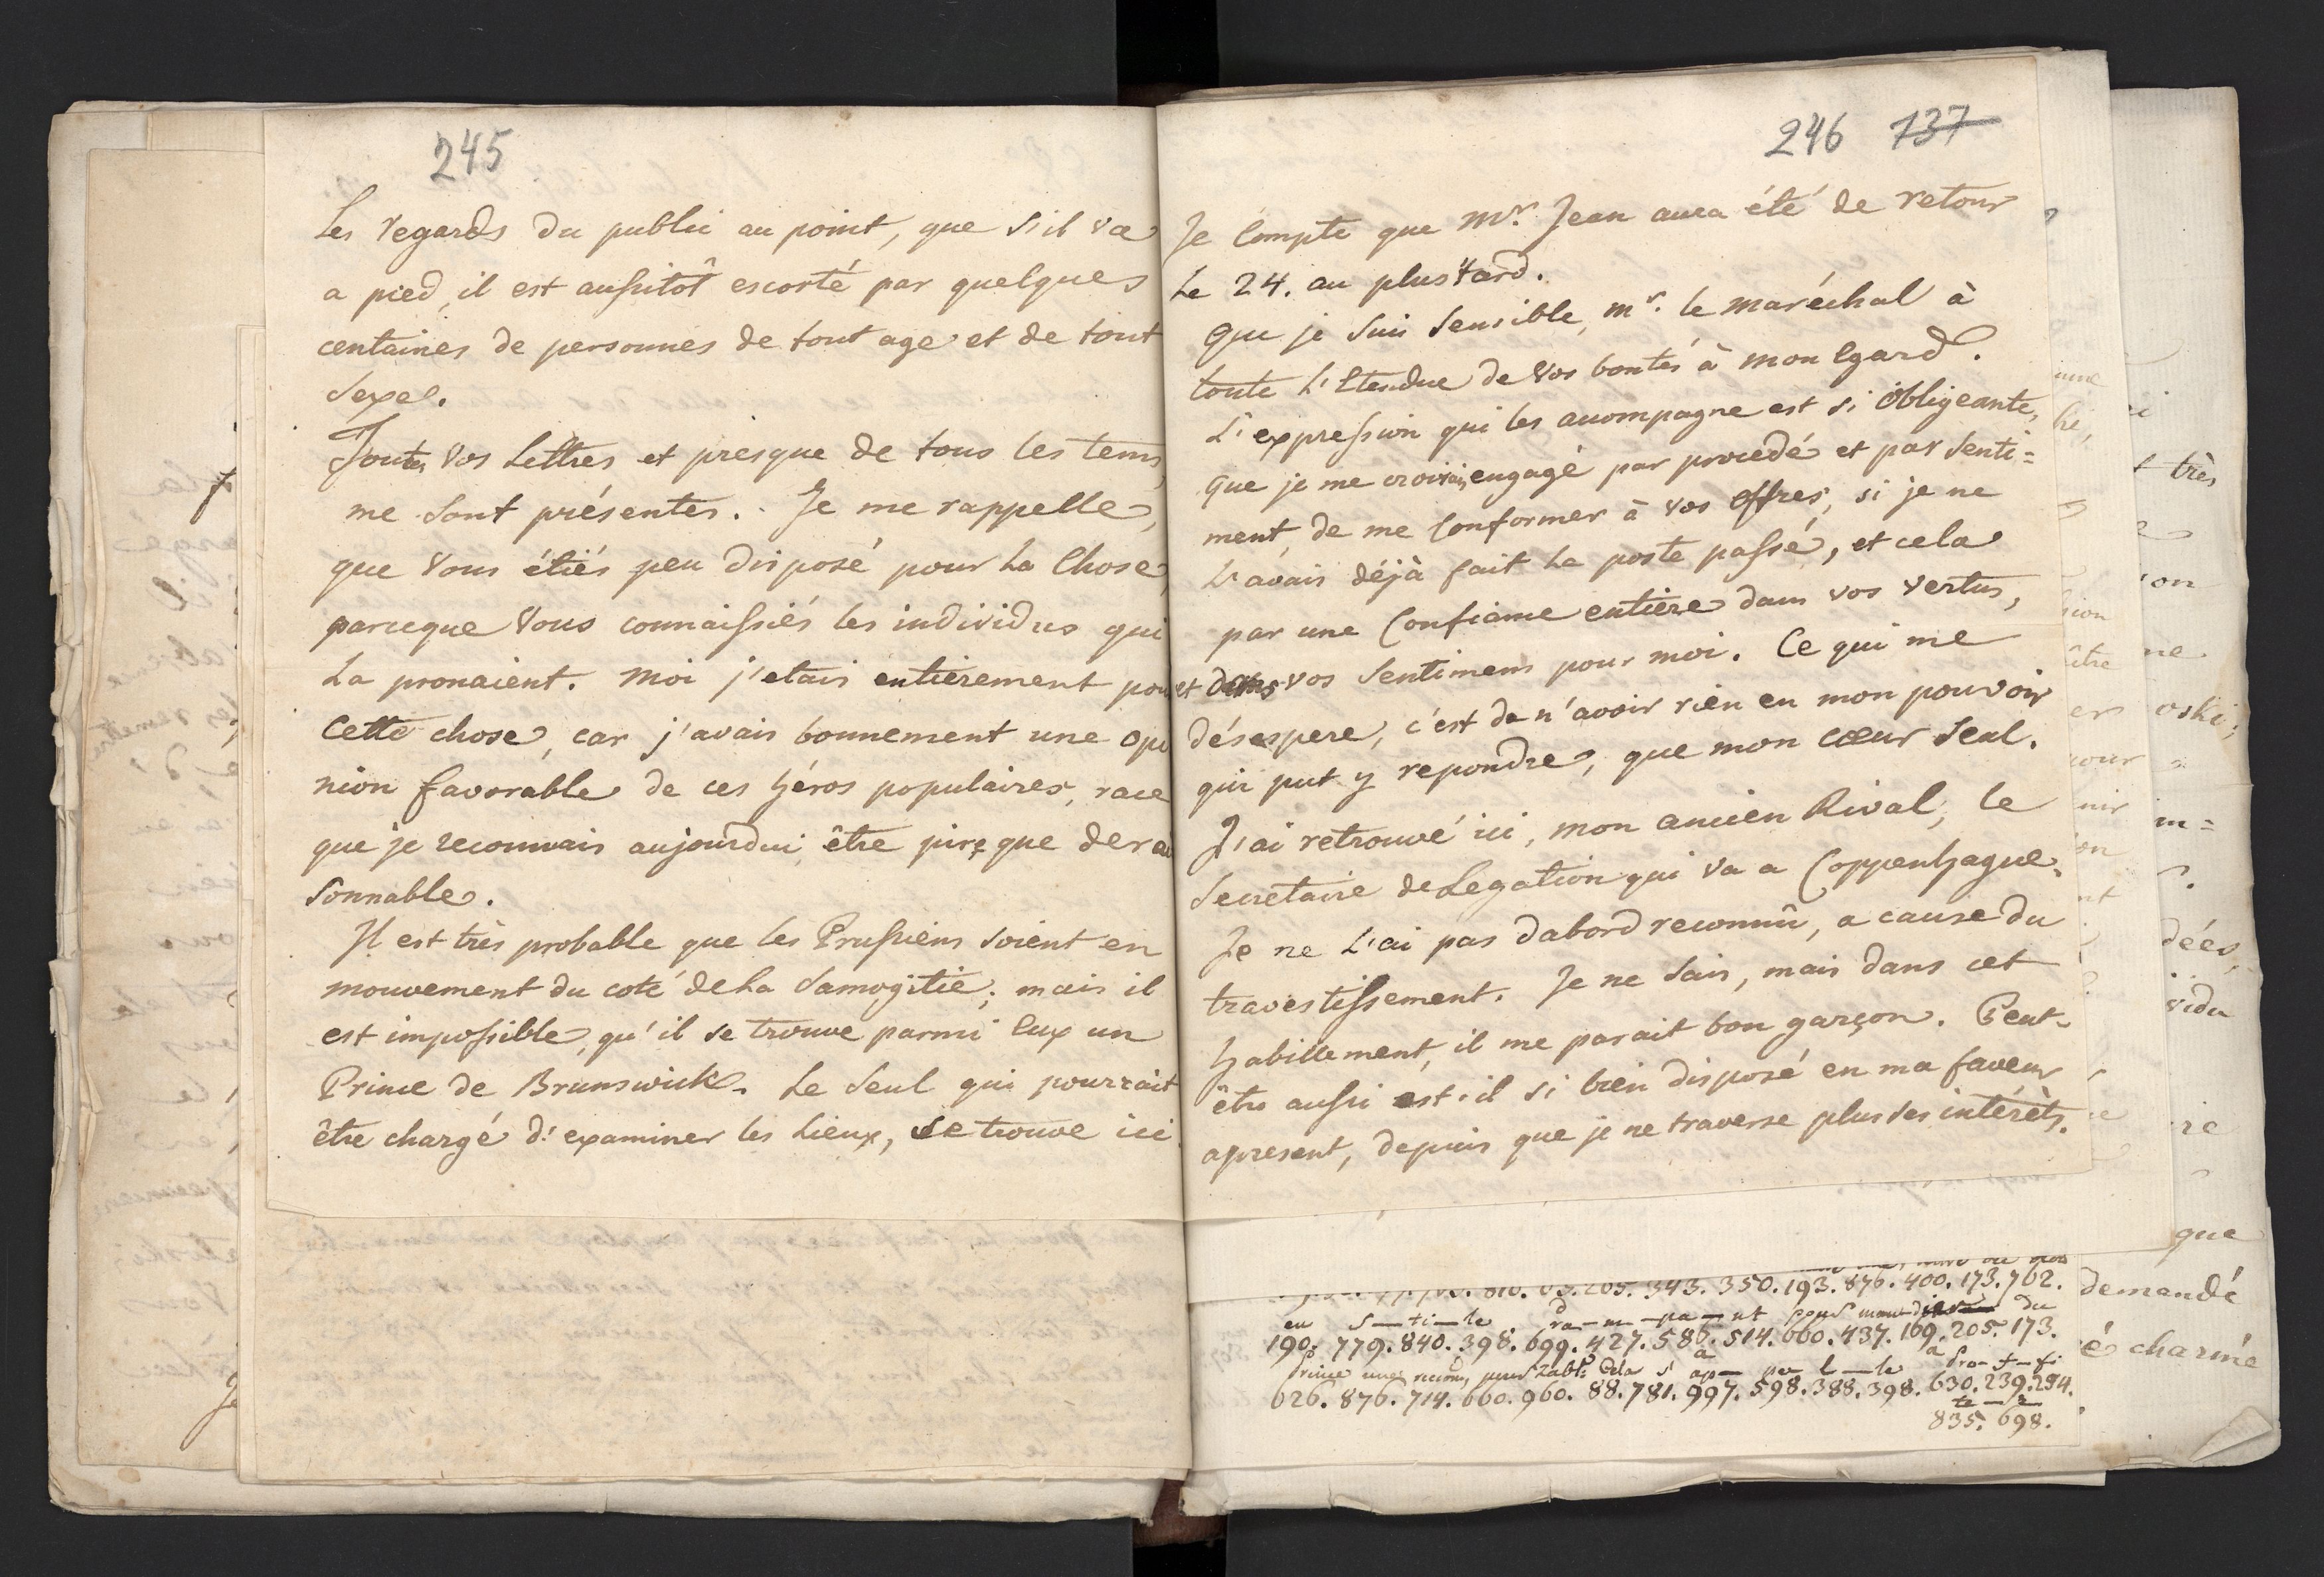 245
Les regards du public au point, que s'il va
a pied, il est aussitôt escorté par quelques
centaines de personnes de tout age et de tout
Sexe.
Toutes vos Lettres et presque de tous les tems,
me sont présentes. Je me rappelle,
que vous étiés peu disposé pour la chose,
parceque vous connaissiés les individus qui
la pronaient. Moi j'etais entièrement pour
Cette chose, car j'avais bonnement une opi
nion favorable de ces héros populaires, race
que je reconnais aujourdui, être pire que derai
sonnable.
Il est très probable que les Prussiens soient en
mouvement du coté de la Samogitie; mais il
est impossible, qu'il se trouve parmi eux un
Prince de Brunswick. Le seul qui pourrait
être chargé d'examiner les lieux, se trouve ici.
246 137
Je compte que Mr. Jean aura été de retour
Le 24. au plus tard.
Que je suis sensible, mr. le maréchal à
toute l'Etendue de vos bontés à mon Egard.
L'expression qui les accompagne est si obligeante,
que je me croirais engagé par procédé et par senti=
ment, de me conformer à vos offres, si je ne
L'avais déjà fait la poste passé, et cela
par une Confiance entière dans vos vertus,
et dans vos sentimens pour moi. Ce qui me
désespere, c'est de n'avoir rien en mon pouvoir
qui put y repondre, que mon cœur seul.
J'ai retrouvé ici, mon ancien Rival, le
Secretaire de Legation qui va a Coppenhague.
Je ne L'ai pas dabord reconnû, a cause du
travestissement. Je ne sais, mais dans cet
habillement, il me parait bon garçon. Peut-
être aussi est-il si bien disposé en ma faveur
apresent, depuis que je ne traverse plus ses intérêts.
205. 343. 350. 193. 876. 400. 173. 702.
en s-ti-le du
190. 779. 840. 398. 699. 427. 586. 514. 660. 437. 169. 205. 173.
Prince une l-le a
626. 876. 714. 660. 960. 88. 781. 997. 598. 388. 398. 630. 239. 294.
835. 698.
très
on
ne
oski;
in=
dées,
vidu
re
que
demandé
é charmé